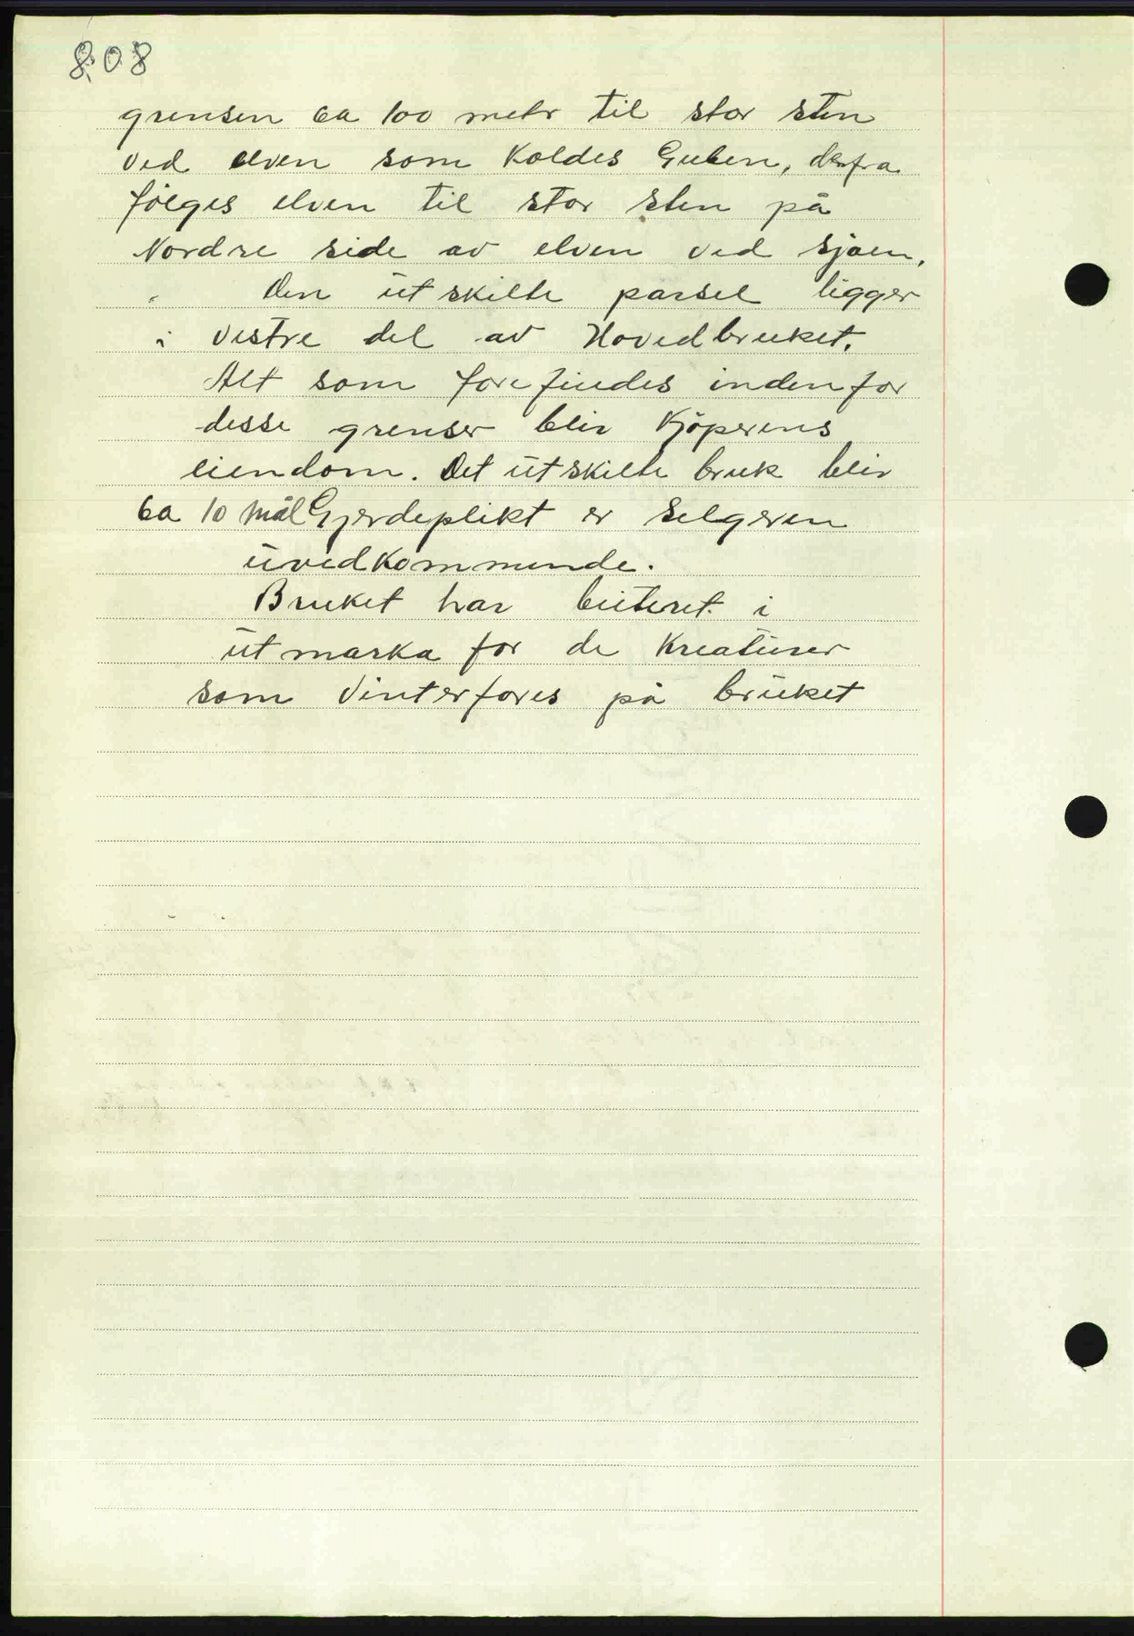 808
grensen ca 100 metr til stor sten
ved elven som Koldes Guben, derfra
følges elven til stor sten på
Nordre side av elven ved sjøen.
Den utskilte parsel ligger
i vestre del av Hovedbruket.
Alt som forefindes indenfor
desse grenser blir Kjøperens
eiendom. Det utskilte bruk blir
ca 10 mål Gjerdeplikt er selgeren
uvedkommende.
Bruket har beiteret i
utmarka for de Kreaturer
som Vinterfores på bruket